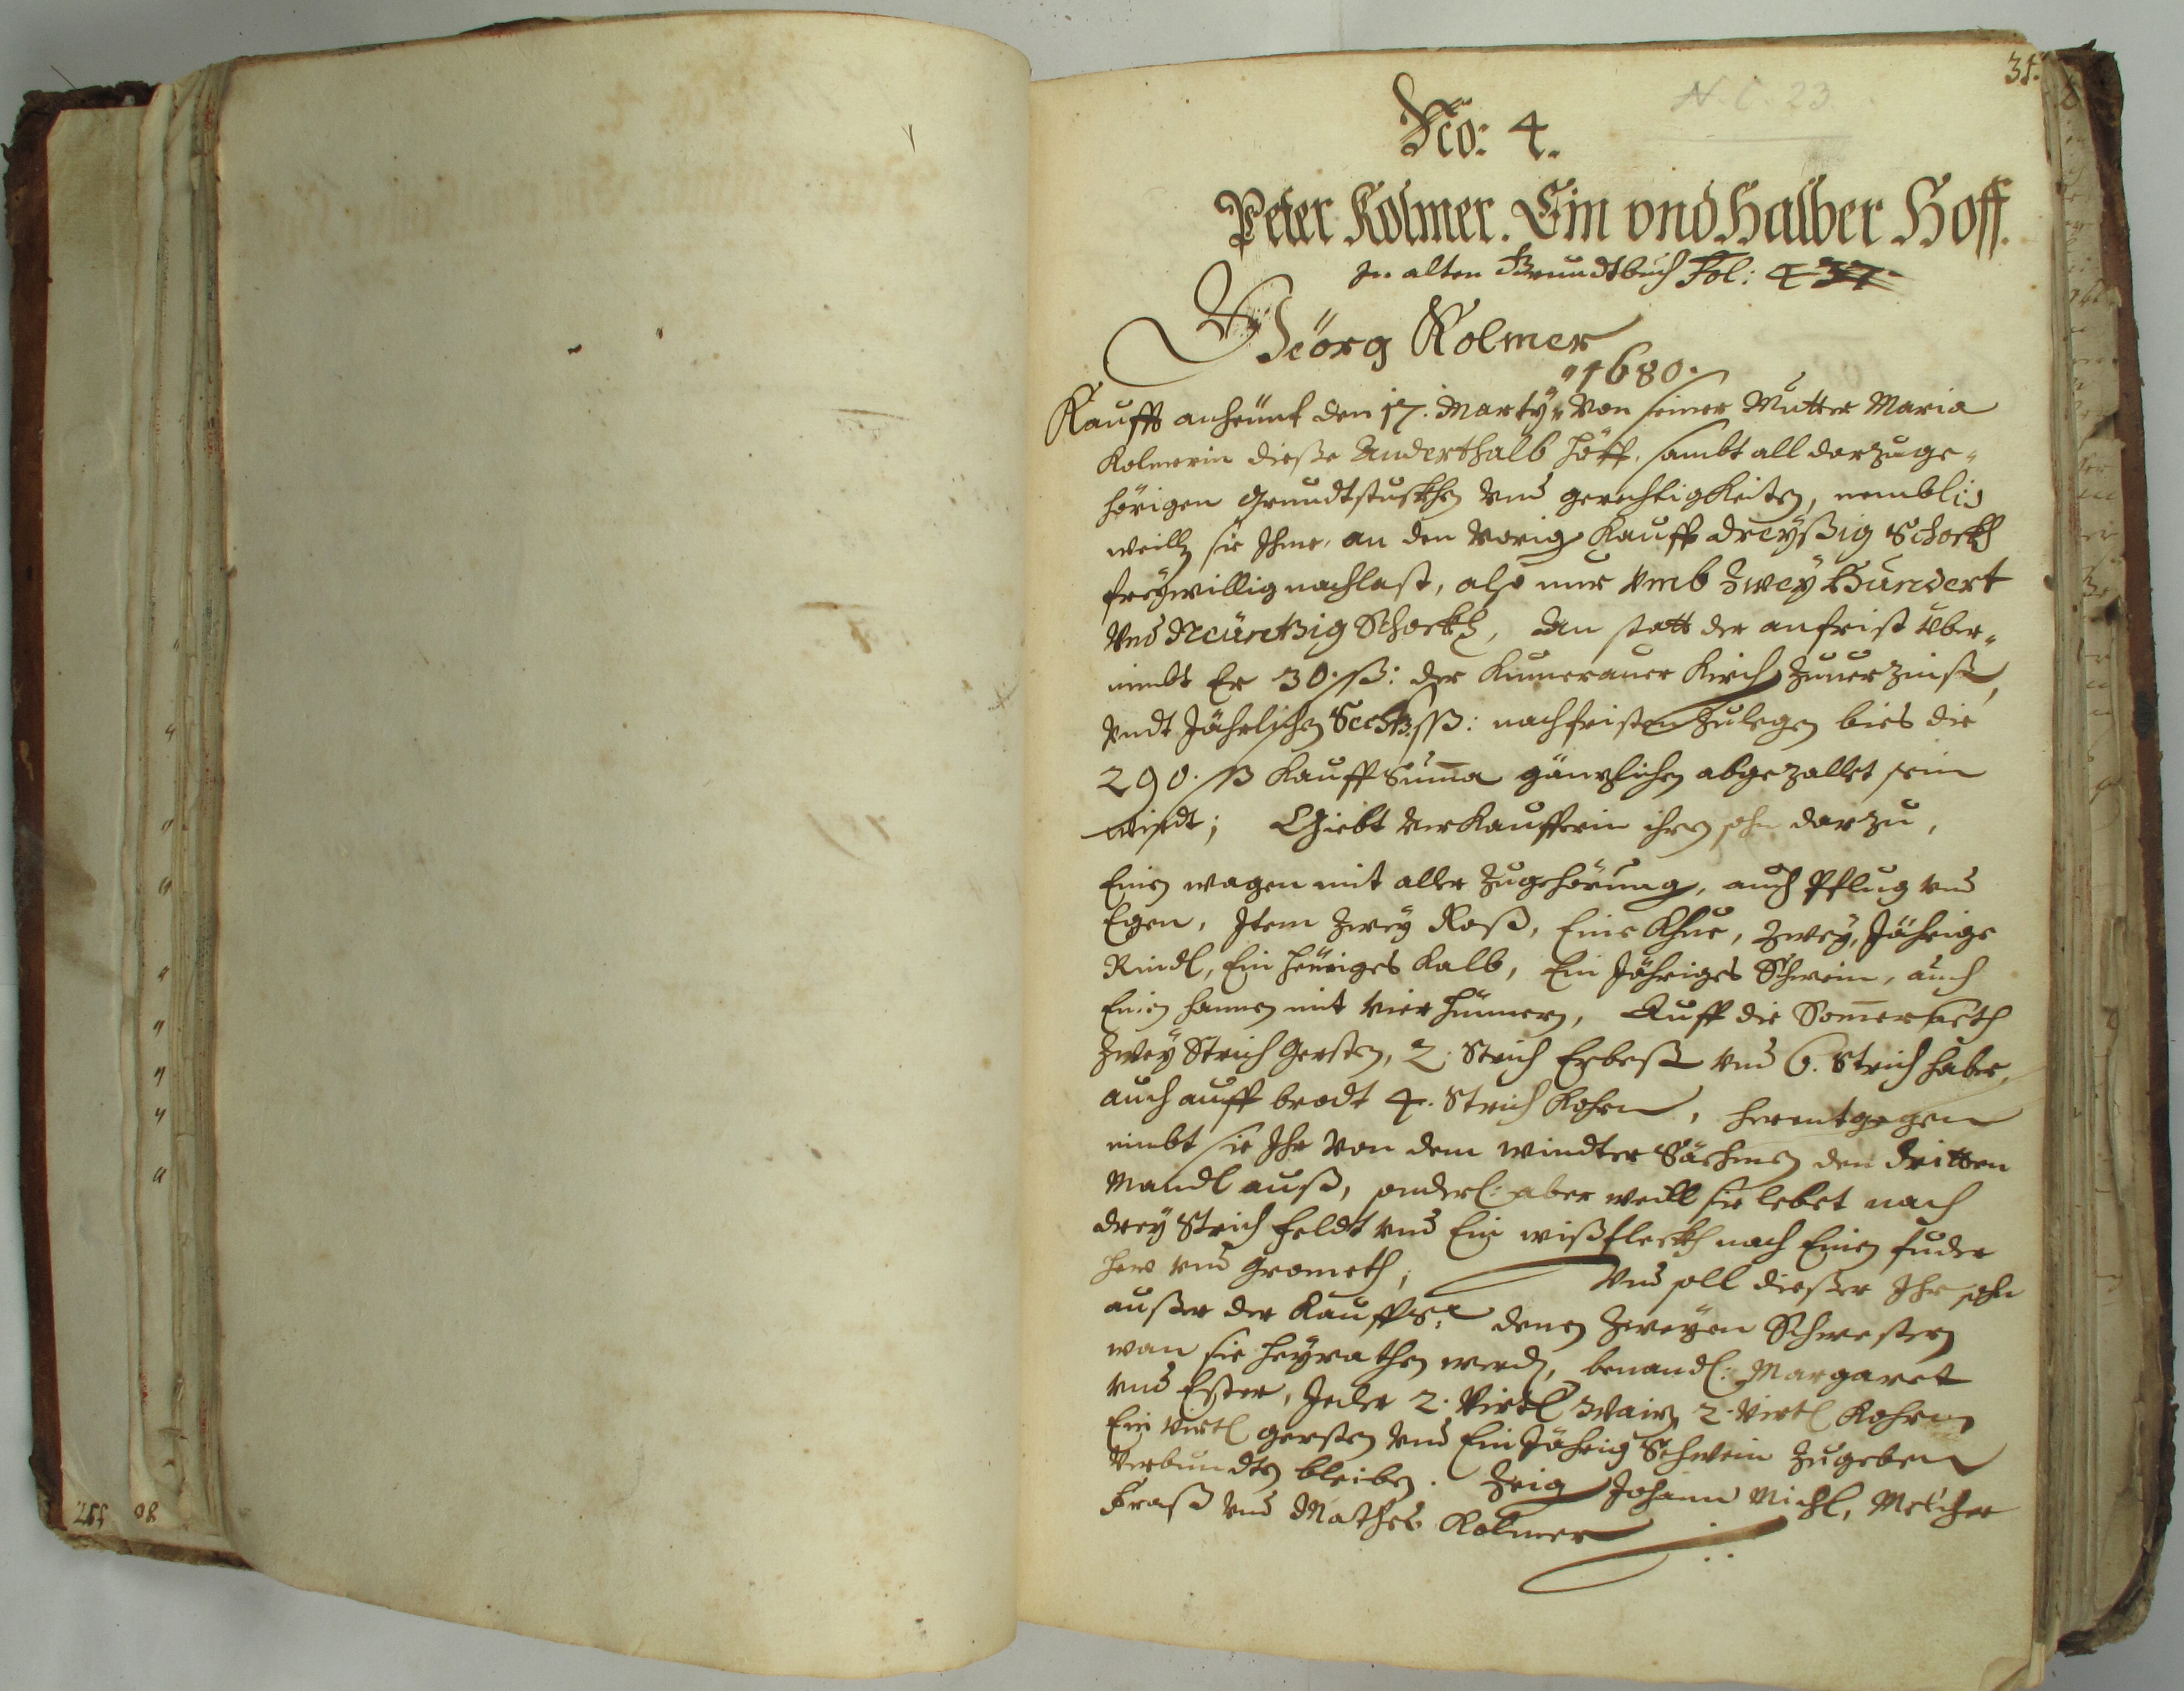 31.
N. C. 23
No: 4.
Peter Kolmer. Ein vnd Halber Hoff.
In alten Grundtbuch Fol: 437
Geörg Kolmer
1680.
Kaufft anheünt den 17. Marty von seiner Mutter Maria
Kolmerin dieße Anderthalb höff, sambt all darzuge-
hörigen grundtstuckhen vnd gerechtigkeiten, nemblich
weilln sie Ihme, an den vorig Kauff dreyßig Schockh
freywillig nachlast, also nur vmb Zwey Hundert
Vnd Neüntzig Schockh, An statt der anfrist über-
nimbt Er 30. ß: der Kumerauer Kirch Zuuerzinß,
Vndt Jährlichen Sechs ß: nachfristen Zulegen bies die
290. ß Kauff Suma gäntzlichen abgezallet sein
wirdt; Giebt Verkaufferin ihren sohn darzu,
Einen wagen mit aller Zugehörung, auch Pflug vnd
Egen, Item Zwey Roß, Eine Khue, Zwey Jährige
Rindl, Ein heüriges Kalb, Ein Jähriges Schwein, auch
Einen hannen mit Vier hünnern, Auff die Somersaeth
Zwey Strich gersten, 2. Strich Erbeß vnd 6. Strich haber,
auch auff brodt 4. Strich Kohrn, herentgegen
nimbt sie Ihr von dem windter Säehmen den dritten
Mandl auß, sonderl: aber weill sie lebet nach
drey Strich feldt vnd Ein wißfleckh nach Einen fuder
hew vnd Grometh; Vnd soll dießer Ihr sohn
außer der Kauff S: denen Zweyen Schwestern
wan sie heyrathen werden, benandl: Margaret
vnd Ester, Jeder 2. Virtl Waitz, 2. Virtl Kohrn,
Ein Virtl gersten vnd Ein Jährig Schwein Zugeben
Verbundten bleiben. Zeig Johann Michl, Melcher
Fraß vnd Mathes Kolmer